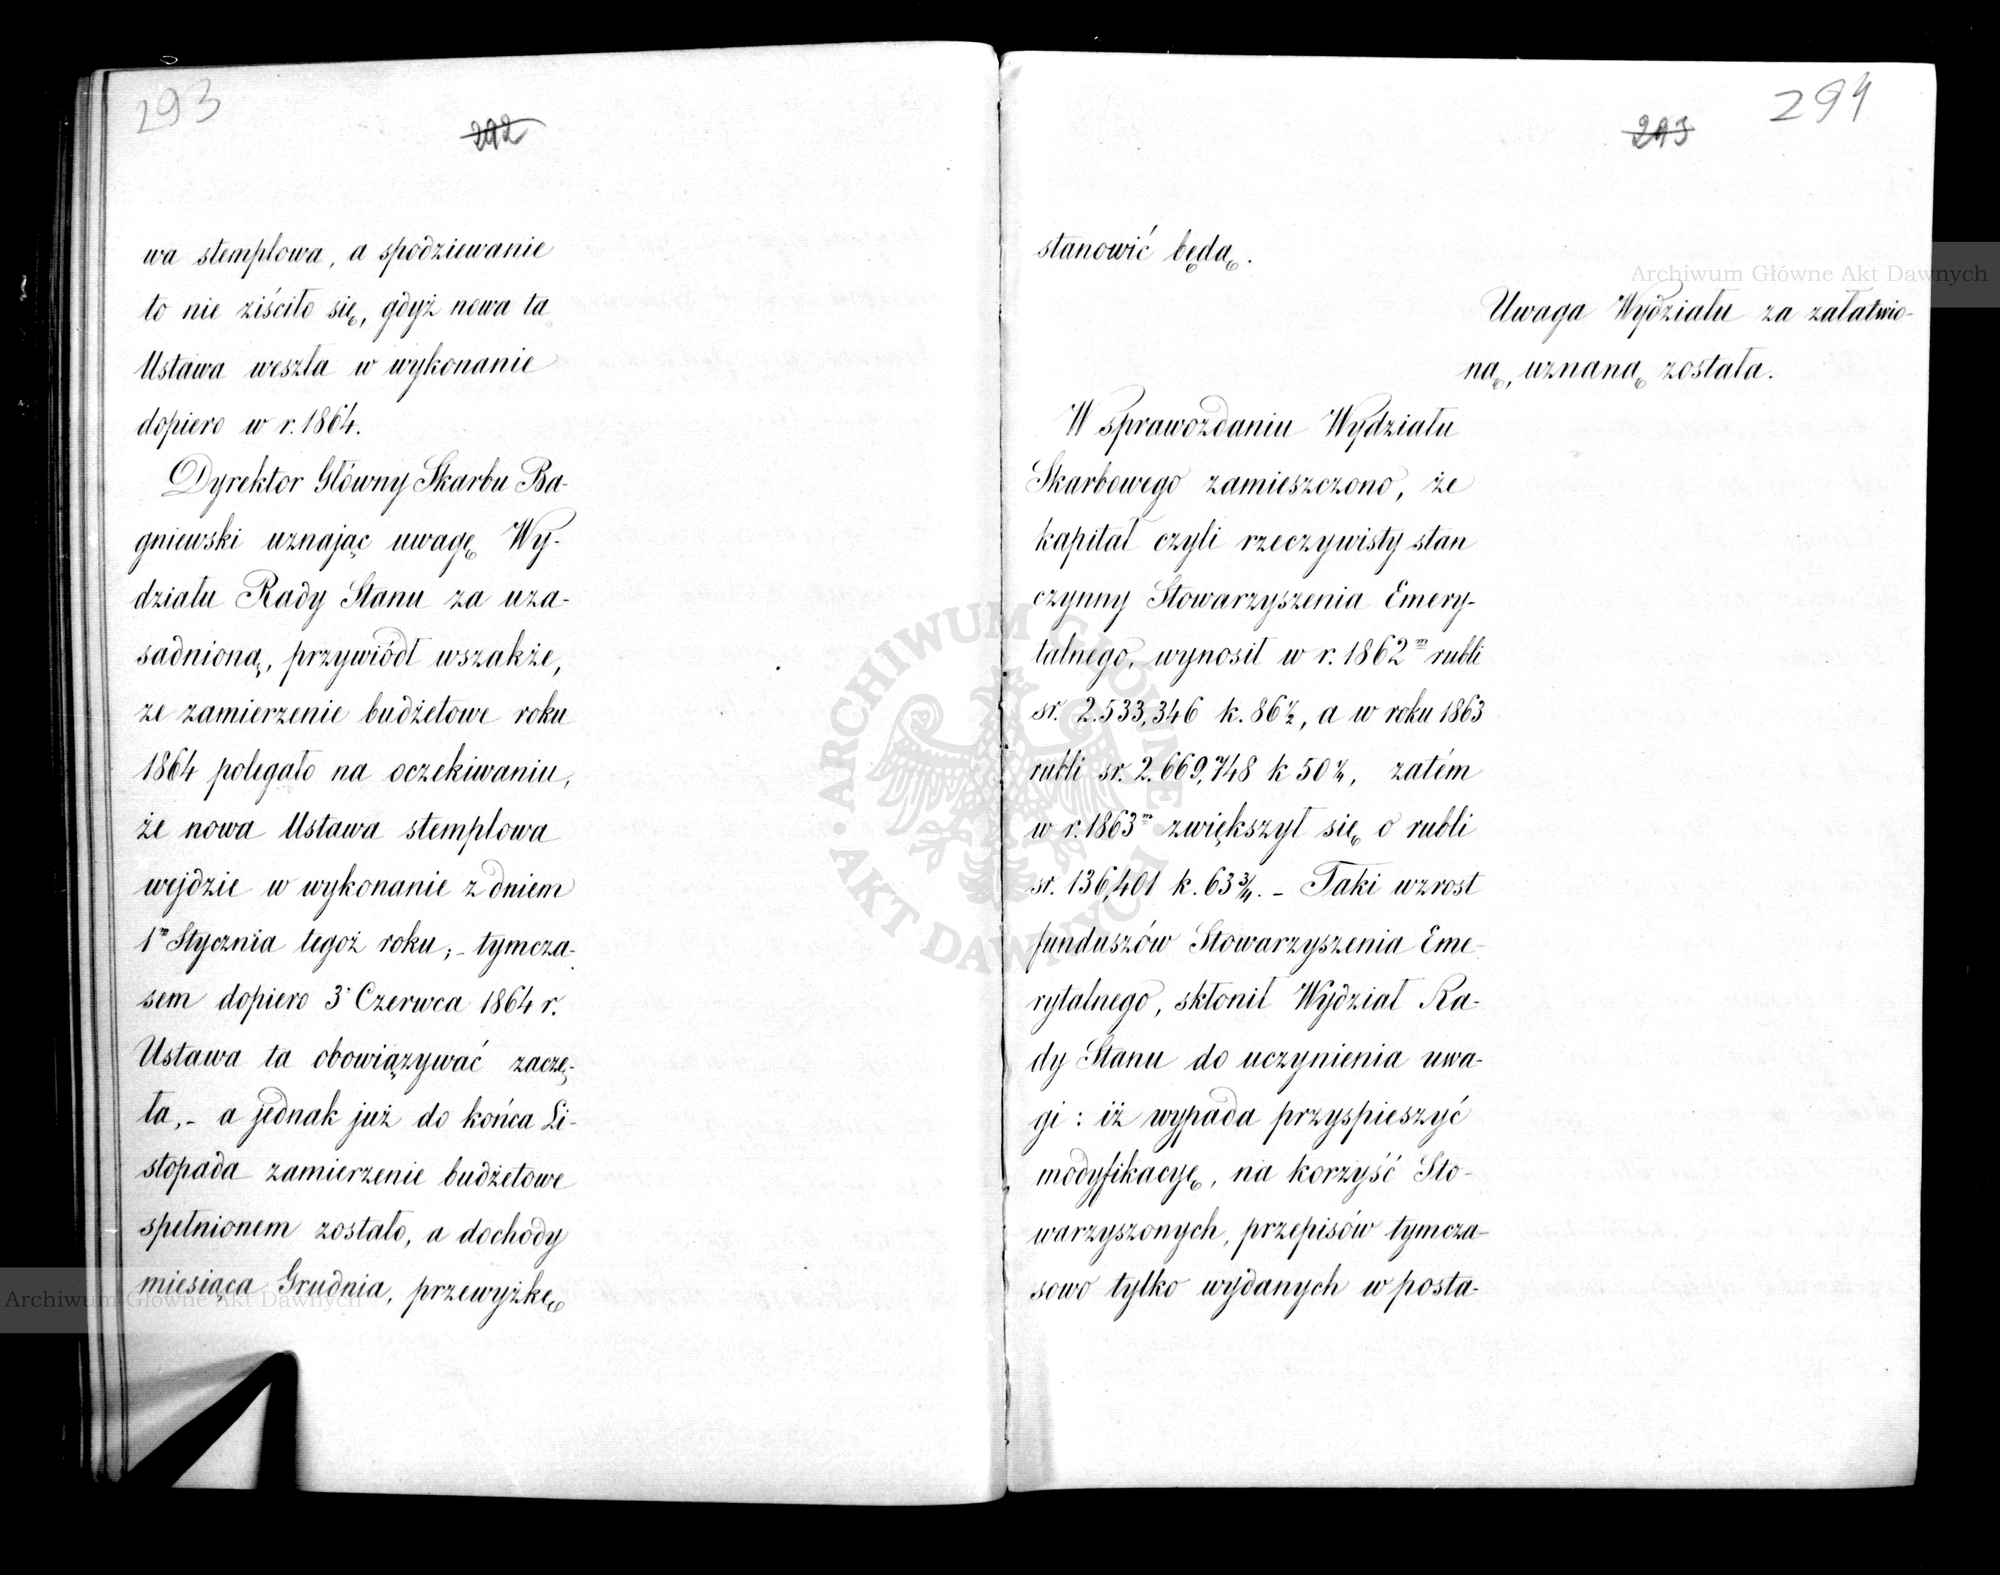 293
292
wa stemplowa, a spodziewanie
to nie ziściło się, gdyż nowa ta
Ustawa weszła w wykonanie
dopiero w r. 1864.
Dyrektor Główny Skarbu Ba-
gniewski uznając uwagę Wy-
działu Rady Stanu za uza-
sadnioną, przywiódł wszakże,
ze zamierzenie budżetowe roku
1864 polegało na oczekiwaniu,
że nowa Ustawa stemplowa
wejdzie w wykonanie z dniem
1m Stycznia tegoż roku; - tymcza-
sem dopiero 3 Czerwca 1864 r.
Ustawa ta obowiązywać zaczę-
ła, - a jednak już do końca Li-
stopada zamierzenie budżetowe
spełnionem zostało, a dochody
miesiąca Grudnia, przewyżkę
294
293
stanowić będą.
Uwaga Wydziału za załatwio-
ną, uznaną została.
W sprawozdaniu Wydziału
Skarbowego zamieszczono, że
kapitał czyli rzeczywisty stan
czynny Stowarzyszenia Emery-
talnego, wynosił w r. 1862m rubli
sr. 2.533,346 k. 86½, a w roku 1863
rubli sr. 2.669,748 k 50¼, zatém
w r. 1863m zwiększył się o rubli
sr. 136,401 k. 63¾. - Taki wzrost
funduszów Stowarzyszenia Eme-
rytalnego, skłonił Wydział Ra-
dy Stanu do uczynienia uwa-
gi: iż wypada przyspieszyć
modyfikacyę, na korzyść Sto-
warzyszonych, przepisów tymcza-
sowo tylko wydanych w posta-
Archiwum Główne Akt Dawnych
Archiwum Główne Akt Dawnych
ARCHIWUM GŁÓWNE • AKT DAWNYCH •